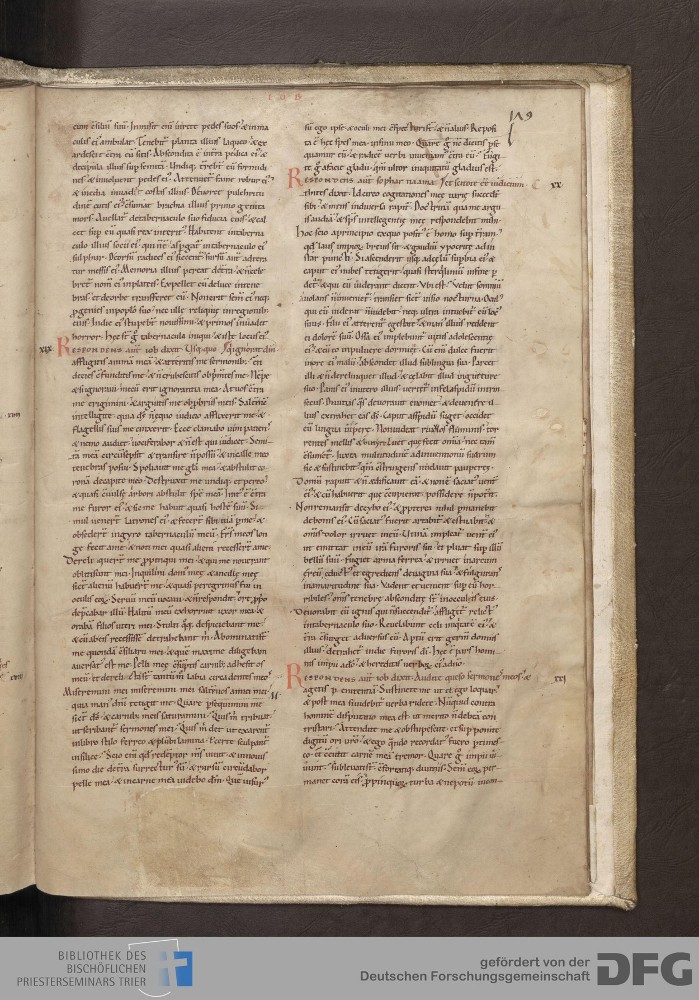 IOB
149
cum consiliū suū. Inmisit enī in rete pedes suos & in ma
culis eī ambulat. Tenebit planta illius laqueo & ex
ardescet
decipula illius sup semitā. Undiq; trebt eū formidi
nes & involvent pedes eī. Attenuet fame robur eī
& inedia invadat costas illius. Devoret pulchritu
dinē cutis eī consumat brachia illius primogenita
mors. Avellat de tabernaculo suo fiducia eius & cal
cet sup eū quasi rex interitus. Habitent in taberna
culo illius socii eī qui nō est. aspgat in tabernaculo eī
sulphur. Deorsū radices eī siccent sursū aut attera
tur messis eī. Memoria illius pereat de tra & n cele
bret nom eī in plateis. Expellet eū de luce in tene
bras et de orbe transferet eū. Non erit sem eī neq;
pgenies in poplo suo nec ulle reliquie in regionib;
eius. In die eī stupebt novissimi & primos invadet
horror. Hec st g tabernacula iniqui & iste locus eī
XIX
RESPONDENS aut iob dixit. Usq; quo
affligitis animā meā & atteritis me sermonib;. en
decies confunditis me & n erubescitis obprimentes me. Nepe
& si ignoravi mecū erit ignorantia mea. At vos contra
me erigimini & arguitis me obprobriis meis. Saltem
intelligite quia ds nequo iudicio afflixerit me &
flagellis suis me cinxerit. Ecce clamabo vim patiens
& nemo audiet. vociferabor & n est qui iudicet. Semi
tā meā circūsepsit & transire n possū & in calle meo
tenebras posuit. Spoliavit me gla mea & abstulit co
ronā de capite meo. Destruxit me undiq; et pereo
& quasi evulse arbori abstulit spē meā. Irat
me furor eī & sic me habuit quasi hostē suū. Si
mul venert latrones eī & fecert sibi viā p me &
obsedert in gyro tabernaculū meū. Frs meos lon
ge fecit a me & noti mei quasi alieni recessert a me.
Derelique rt me ppinqui mei & qui me noverant
obliti sunt mei. Inquilini dom mee & ancille mee
sic alienū habuert me & quasi peregrinus fui in
oculis eoꝝ. Servū meū vocavi & n respondit ore ppo
depcabar illū. Halitū meū exhorruit uxor mea &
orabā filios uteri mei. Stulti qq; despiciebant me
& cū ab eis recessissē detrahebant m. Abominati st
me quondā consiliarii mei & quē maxime diligebam
aversat est me. Pelli mee consumptis carnib; adhesit os
meū et derelicta st tantū labia circa dentes meos.
Miseremini mei miseremini mei saltē vos amici mei
quia man dni tetigit me. Quare psequimini me
sic ds & carnib; meis saturamini. Quis m tribuat
ut scribant sermones mei. Quis m det ut exarent
in libro stilo ferreo & plūbi lamina l certe sculpant
in silice. Scio enī qd redeptor ms vivit & in novis
simo die de tra surrecturus sū & rursū circūdabor
pelle mea & in carne mea videbo dm. Quē visur
sū ego ipse & oculi mei conspecturi st & n alius. Reposi
ta est hec spes mea in sinu meo. Quare g nc dicitis pse
quamur eū & radicē verbi inveniam contra eū. Fugi
te g a facie gladii qm ultor iniquitatū gladius est &
scitote esse iudicium
XX
RESPONDENS aut sophar naama
thites dixit. Idcirco cogitationes mee varie succedt
sibi & mens in diversa rapit. Doctrinā qua me argu
is audiā & sps intelligentie mee respondebit mihi.
Hoc scio a principio ex quo posit est homo sup trram
qd laus impioꝝ brevis sit & gaudiū ypocrite ad in
star puncti. Si ascenderit usq; ad celū supbia eī &
caput eī nubes tetigerit quasi sterqlinū in fine p
det & qui eū viderant dicent. Ubi est? Velut somniū
avolans n invenietur transiet sic visio nocturna. Ocul
qui eū viderat n videbit neq; ultra intuebit eū loc
suus. Filii eī atterent egestate & man illius reddent
ei dolorē suū. Ossa eī implebunt vitiis adolescentie
eī & cū eo in pulvere dormient. Cū enī dulce fuerit
in ore eī malū abscondet illud sub lingua sua. Parcet
illi & n derelinquet illud & celabit illud in gutture
suo. Panis eī in utero illius vertet in fel aspidū intrin
secus. Divitias qs devoravit evomet & de ventre il
lius extrahet eas ds. Caput aspidū suget occidet
eū lingua vipere. Non videat rivulos fluminis tor
rentes mellis & butyri. Luet que fecit omia nec tam
consumet. Iuxta multitudinē adinventionū suarum
sic & sustinebit qm confringens nudavit pauperes.
Domū rapuit & n edificavit eā & non est saciat vent
eī & cū habuerit que concupierat possidere n poterit.
Non remansit de cybo eī & ppterea nihil pmanebit
de bonis eī. Cū saciat fuerit artabit & estuabit &
omis dolor irruet in eū. Utinā impleat vent eī
ut emittat in eū irā furoris sui et pluat sup illū
bellū suū. Fugiet arma ferrea & irruet in arcum
ereū eductus et egrediens de vagina sua & fulgurans
in amaritudine sua. Vadent et venient sup eū hor
ribiles omis tenebre abscondite st in occultis eius.
Devorabit eū ignis qui n succendit affliget relict
in tabernaculo suo. Revelabunt celi iniqtatē eī &
tra consurget adversus eū. Aptū erit germ domus
illius detrahet in die furoris di. Hec est pars homi
nis impii a do & hereditas verboꝝ eī a dno.
XXI
RESPONDENS aut iob dixit. Audite queso sermones meos &
agetis penitentiā. Sustinete me ut et ego loquar
& post mea si videbit verba ridete. Nūquid contra
hominē disputatio mea est ut merito n debeā con
tristari. Attendite me & obstupescite et supponite
digitū ori vro. & ego qndo recordat fuero ptimes
co et concutit carnē meā tremor. Quare g impii vi
vunt. sublevati st confortatiq; divitiis. Sem eoꝝ per
manet corā eis ppinquoꝝ turba & nepotū in con
BIBLIOTHEK DES
BISCHÖFLICHEN
PRIESTERSEMINARS TRIER
gefördert von der
Deutschen Forschungsgemeinschaft
DFG